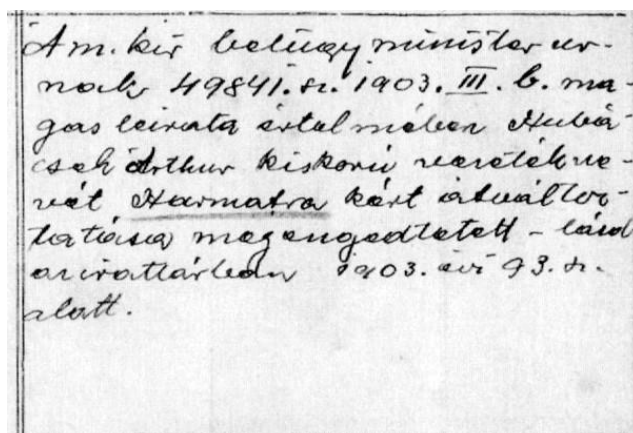 A m. kir belügyminister ur-
nak 49841. sz. 1903. III. b. ma-
gas leirata értelmében Hubá-
csek Arthur kiskorú vezetékne-
vét Harmatra kért átváltoz-
tatása megengedtetett - lásd
az irattárban 1903. évi 93. sz.
alatt.